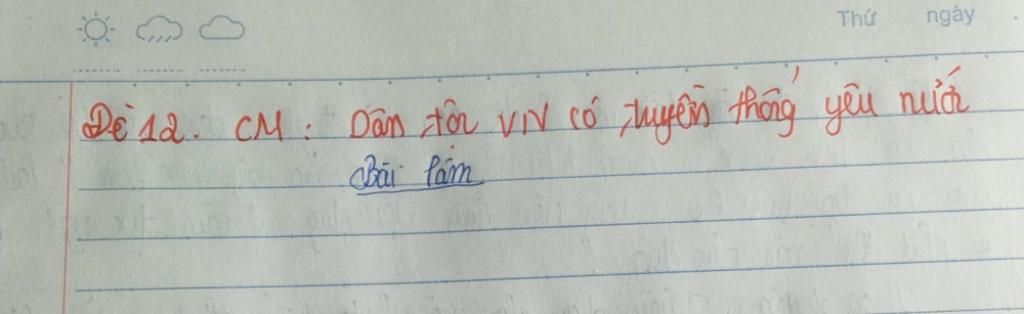 Thứ ngày
Đề 12. CM: Dân tộc VN có truyền thống yêu nước
Bài làm